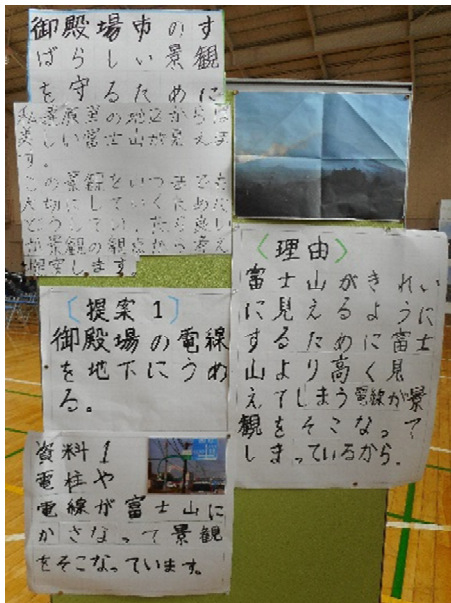 御殿場市のす
ばらしい景観
を守るために
の地区からは
美しい富士山が見えま
す。
この景観をいつまでも
大切にしていくために
どうしていったら良い
か景観の観点から考え
提案します。
〔提案1〕
御殿場の電線
を地下にうめ
る。
資料1
電柱や
電線が富士山に
かさなって景観
をそこなっています。
〈理由〉
富士山がきれい
に見えるように
するために富士
山より高く見
えてしまう電線が景
観をそこなって
しまっているから.